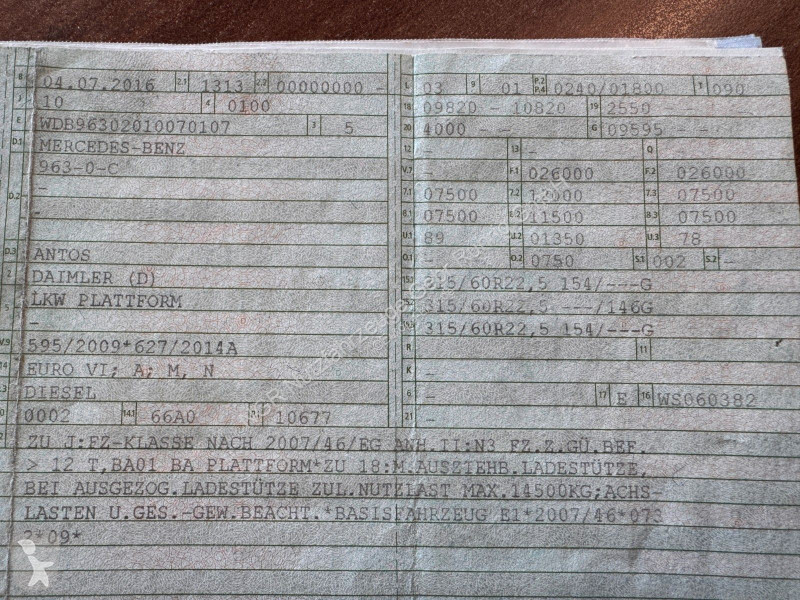 B 04.07.2016 2.1 1313 2.2 00000000 -
J 10 4 0100
E WDB96302010070107 3 5
D.1 MERCEDES-BENZ
963-0-C
-
D.2 -
D.3 ANTOS
2 DAIMLER (D)
5 LKW PLATTFORM
-
V.9 595/2009*627/2014A
14 EURO VI; A; M, N
P.3 DIESEL
10 0002 14.1 66A0 P.1 10677
22 ZU J:FZ-KLASSE NACH 2007/46/EG ANH.II:N3 FZ.Z.GÜ.BEF.
> 12 T,BA01 BA PLATTFORM*ZU 18:M.AUSZIEHB.LADESTÜTZE,
BEI AUSGEZOG.LADESTÜTZE ZUL.NUTZLAST MAX.14500KG;ACHS-
LASTEN U.GES.-GEW.BEACHT.*BASISFAHRZEUG E1*2007/46*073
2*09*
L 03 9 01 P.2 P.4 0240/01800 T 090
18 09820 - 10820 19 2550 - -
20 4000 - - G 09595 - -
12 - 13 - Q -
V.7 - F.1 026000 F.2 026000
7.1 07500 7.2 12000 7.3 07500
8.1 07500 8.2 11500 8.3 07500
U.1 89 U.2 01350 U.3 78
O.1 - O.2 0750 S.1 002 S.2 -
15.1 315/60R22,5 154/---G
15.2 315/60R22,5 ---/146G
15.3 315/60R22,5 154/---G
R - 11 -
K -
6 - 17 E 16 WS060382
21 -